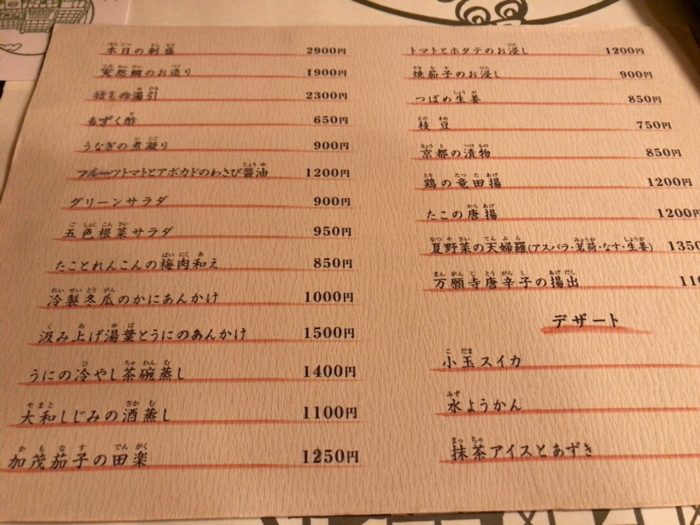 本日の刺盛 2900円
天然鯛のお造り 1900円
はもの湯引 2300円
もずく酢 650円
うなぎの煮凝り 900円
フルーツトマトとアボカドのわさび醤油 1200円
グリーンサラダ 900円
五色根菜サラダ 950円
たことれんこんの梅肉和え 850円
冷製冬瓜のかにあんかけ 1000円
汲み上げ湯葉とうにのあんかけ 1500円
うにの冷やし茶碗蒸し 1400円
大和しじみの酒蒸し 1100円
加茂茄子の田楽 1250円
トマトとホタテのお浸し 1200円
焼茄子のお浸し 900円
つばめ生姜 850円
枝豆 750円
京都の漬物 850円
鶏の竜田揚 1200円
たこの唐揚 1200円
夏野菜の天婦羅(アスパラ・茗荷・なす・生姜) 1350
万願寺唐辛子の揚出 11
デザート
小玉スイカ
水ようかん
抹茶アイスとあずき